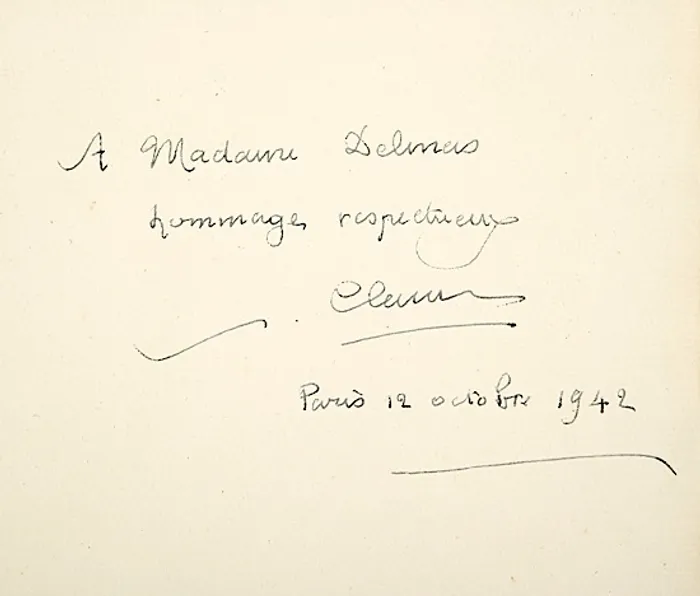 A Madame Delmas
hommages respectueux
Paris 12 octobre 1942